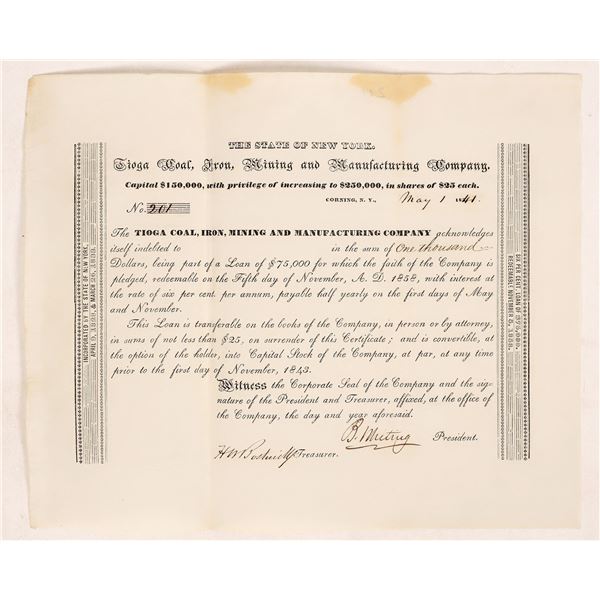 THE STATE OF NEW YORK.
Tioga Coal, Iron, Mining and Manufacturing Company.
Capital $150,000, with privilege of increasing to $250,000, in shares of $25 each.
CORNING, N. Y., May 1 1841.
No. 201
The TIOGA COAL, IRON, MINING AND MANUFACTURING COMPANY acknowledges
itself indebted to in the sum of One thousand
Dollars, being part of a Loan of $75,000 for which the faith of the Company is
pledged, redeemable on the Fifth day of November, A. D. 1858, with interest at
the rate of six per cent. per annum, payable half yearly on the first days of May
and November.
This Loan is transferable on the books of the Company, in person or by attorney,
in sums of not less than $25, on surrender of this Certificate; and is convertible, at
the option of the holder, into Capital Stock of the Company, at par, at any time
prior to the first day of November, 1843.
Witness the Corporate Seal of the Company and the sig-
nature of the President and Treasurer, affixed, at the office of
the Company, the day and year aforesaid.
President.
H W Bostwick Treasurer.
INCORPORATED BY THE STATE OF NEW YORK,
SIX PER CENT. LOAN OF $75,000,
REDEEMABLE NOVEMBER 5, 1858.